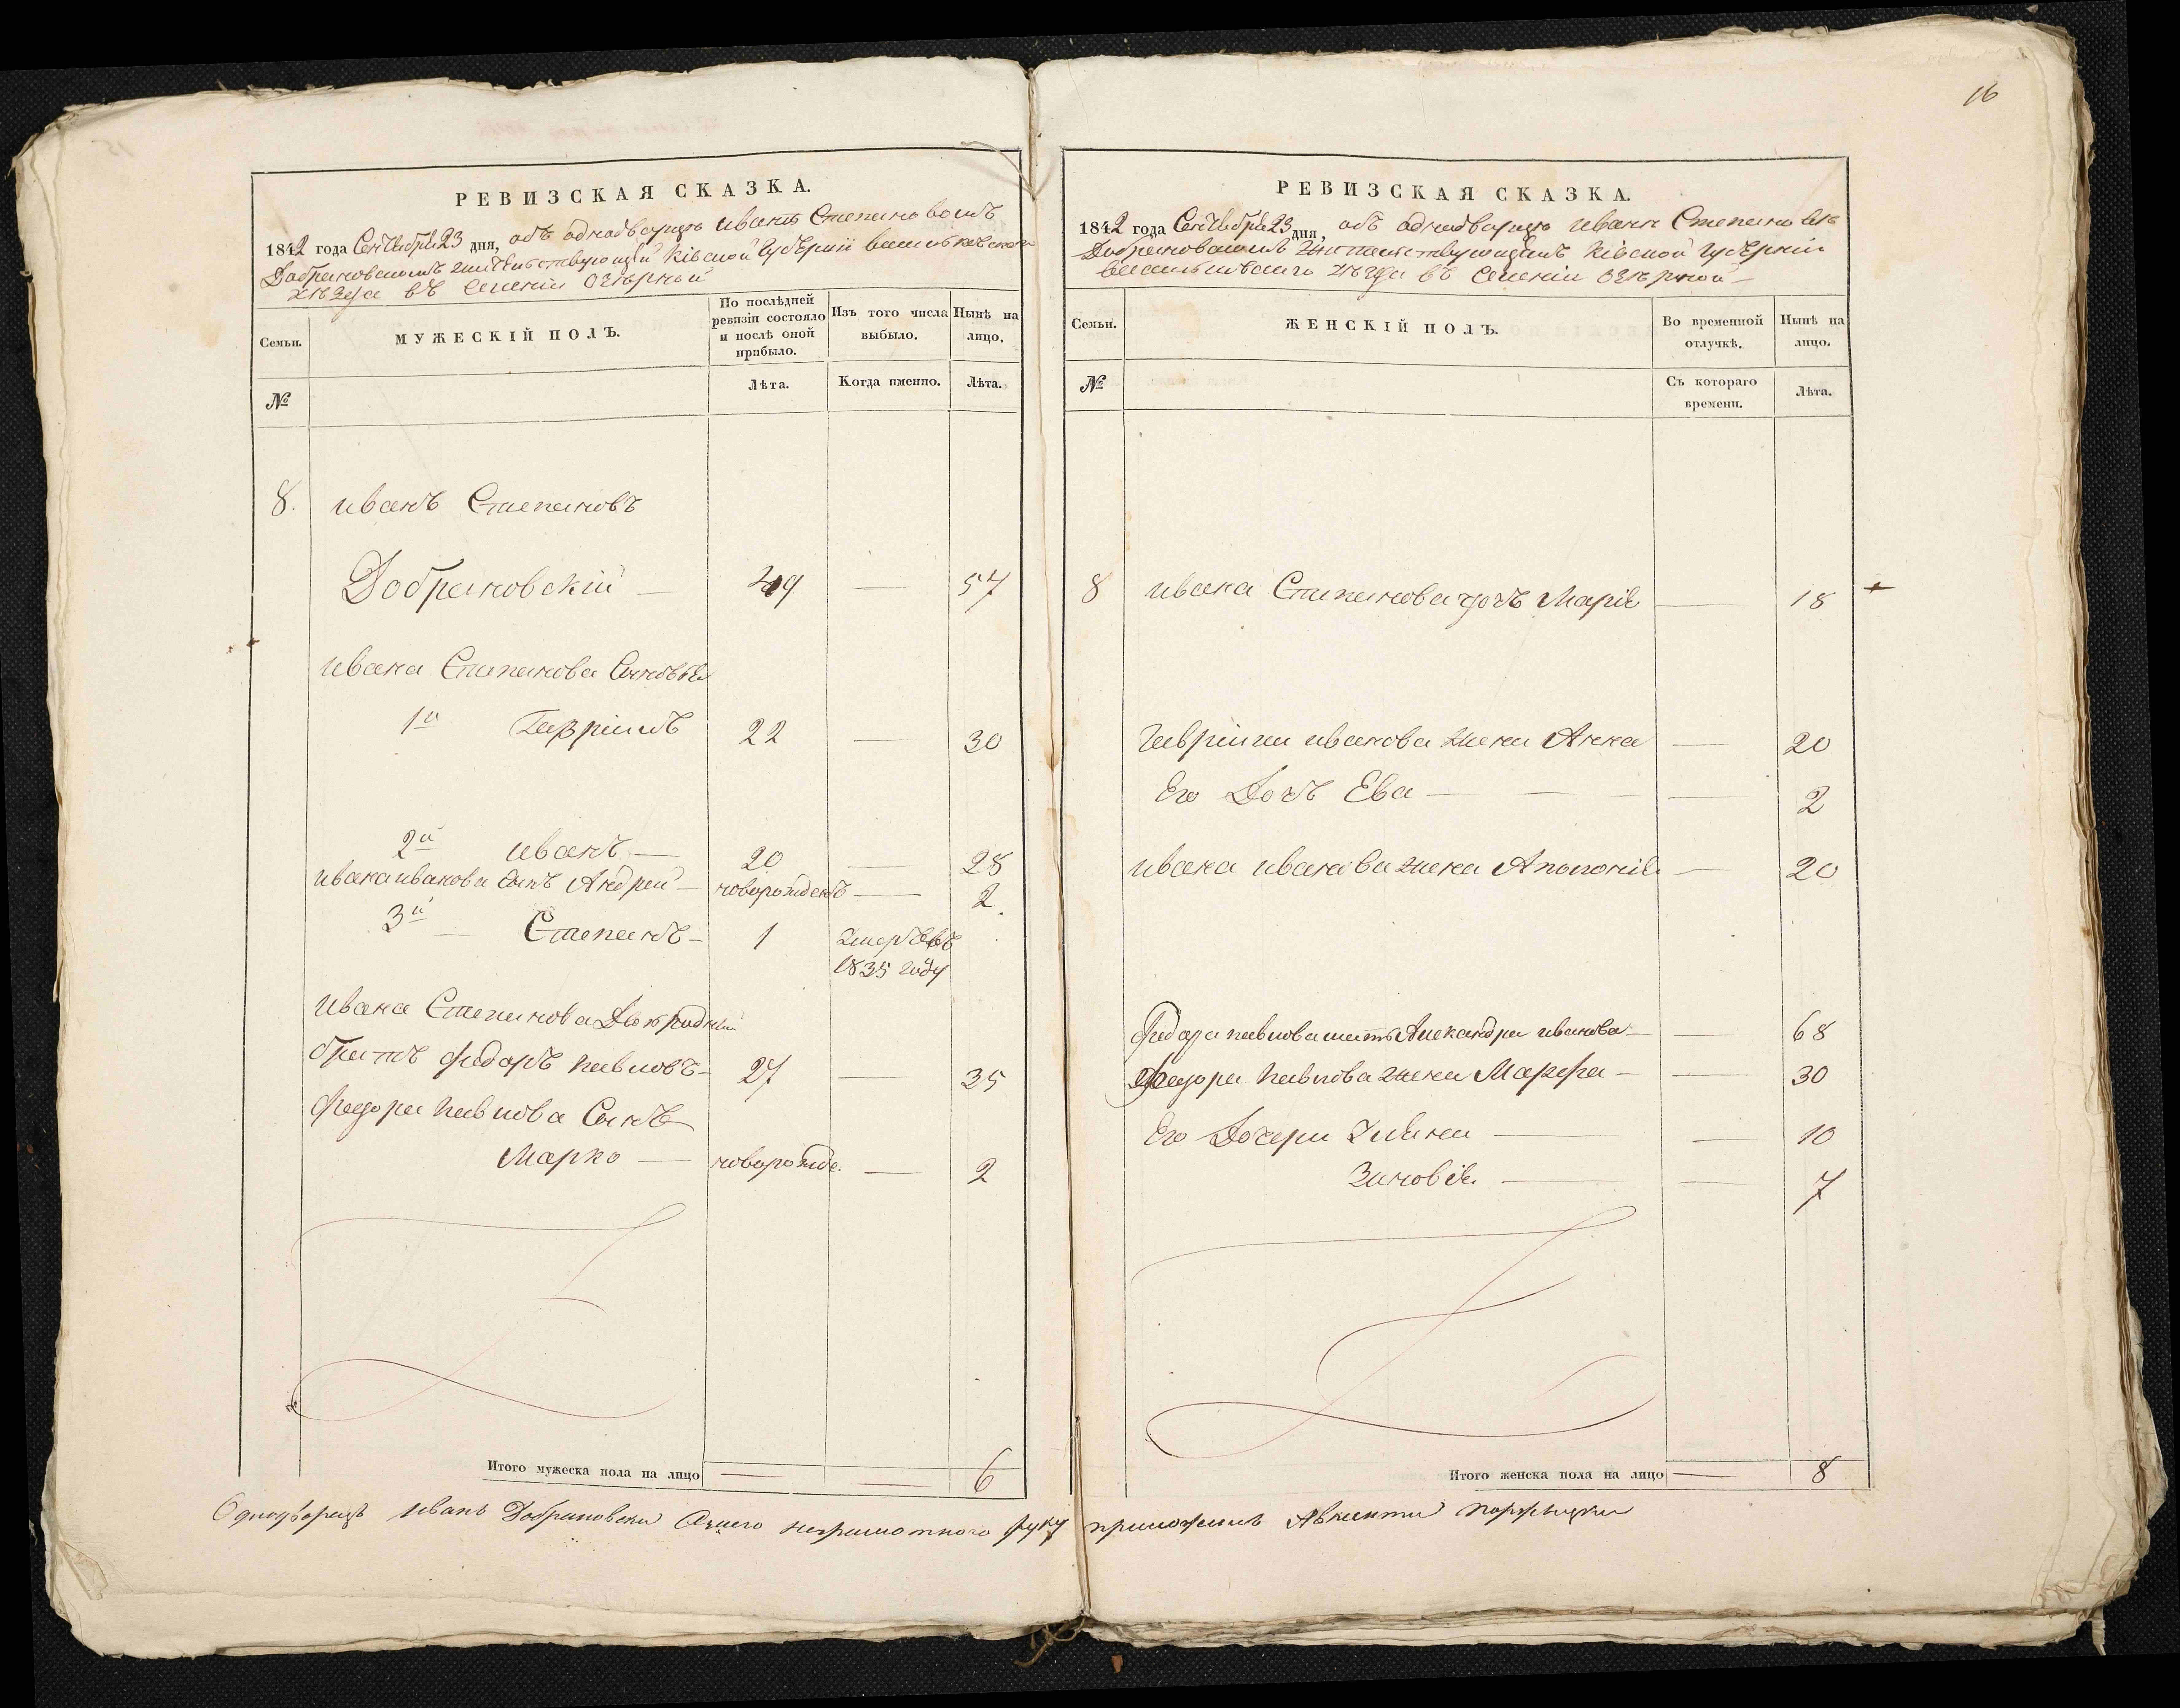 16
РЕВИЗСКАЯ СКАЗКА.
1842 года Сентября 23 дня, объ однодворцѣ Иванѣ Степановомъ
Добрановскомъ жительствующій Кіевской Губерніи Васильковскаго
уѣзда въ селеніи Озѣрной
Семьи. МУЖЕСКІЙ ПОЛЪ. По послѣдней ревизіи состояло и послѣ оной прибыло. Изъ того числа выбыло. Нынѣ на лицо.
№ Лѣта. Когда именно. Лѣта.
8. Иванъ Степановъ
Добрановскій — 49 — 57
Ивана Степанова Сыновья
1й Гавріилъ 22 — 30
2й Иванъ — 20 — 28
Ивана Иванова Сынъ Андрей — новорожденъ — 2.
3й — Степанъ — 1 умеръ въ
1835 году
Ивана Степанова Двоюродный
братъ Федоръ Павловъ — 27 — 35
Федора Павлова Сынъ
Марко — новорожде. — 2
Итого мужеска пола на лицо — — 6
РЕВИЗСКАЯ СКАЗКА.
1842 года Сентября 23 дня, объ однодворцѣ Иванѣ Степановѣ
Добрановскомъ жительствующемъ Кіевской Губерніи
Васильковскаго уѣзда въ селеніи Озѣрной —
Семьи. ЖЕНСКІЙ ПОЛЪ. Во временной отлучкѣ. Нынѣ на лицо.
№ Съ котораго времени. Лѣта.
8 Ивана Степанова дочь Марія — 18
Гавріила Иванова жена Анна — 20
Его Дочь Ева — — — — 2
Ивана Иванова жена Аполонія — 20
Федора Павлова мать Александра Иванова — — 68
Федора Павлова жена Марфа — — 30
Его Дочери — — 10
Зиновія — — 7
Итого женска пола на лицо — 8
Однодворецъ Иванъ Добрановски а за него неграмотного руку приложилъ